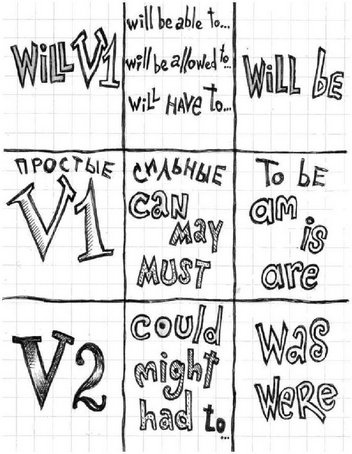 Will V1
will be able to...
will be allowed to...
will have to...
Will be
ПРОСТЫЕ
V1
СИЛЬНЫЕ
can
may
must
To be
am
is
are
V2
could
might
had to...
was
were